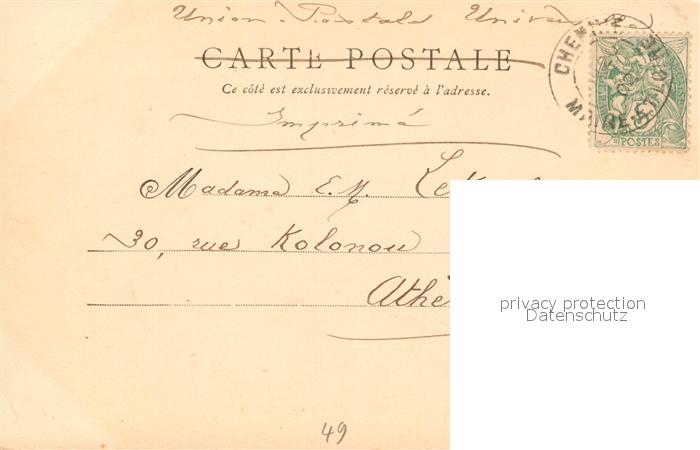 Union Postale Universelle
CARTE POSTALE
Ce côté est exclusivement réservé à l'adresse.
Imprimé
CHEMILLÉ
MAINE-ET-LOIRE
POSTES
Madame E. M.
30, rue Kolonou
Athè
privacy protection
Datenschutz
49